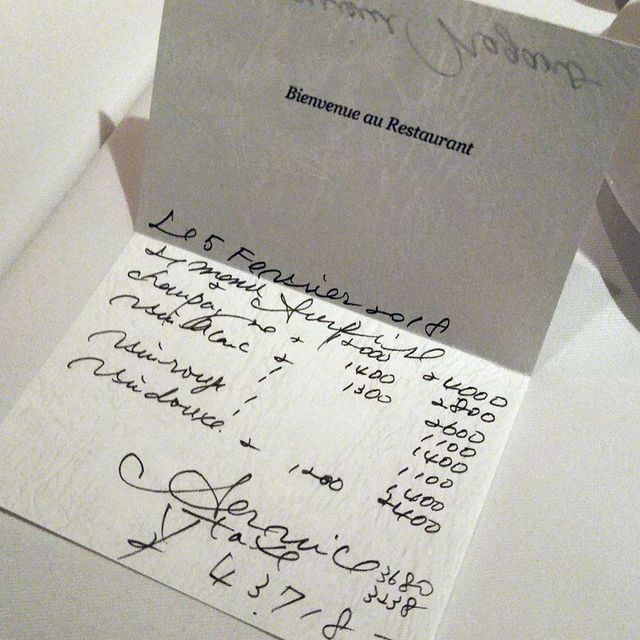 Bienvenue au Restaurant
Le 5 Février 2018
2 menu Surprise 12000 24000
champagne 2 1400 2800
vin blanc 2 1300 2600
1 1100
vin rouge 1 1400
1 1100
vin doux 2 1200 2400
Service 3680
tax 3238
¥ 43.718-